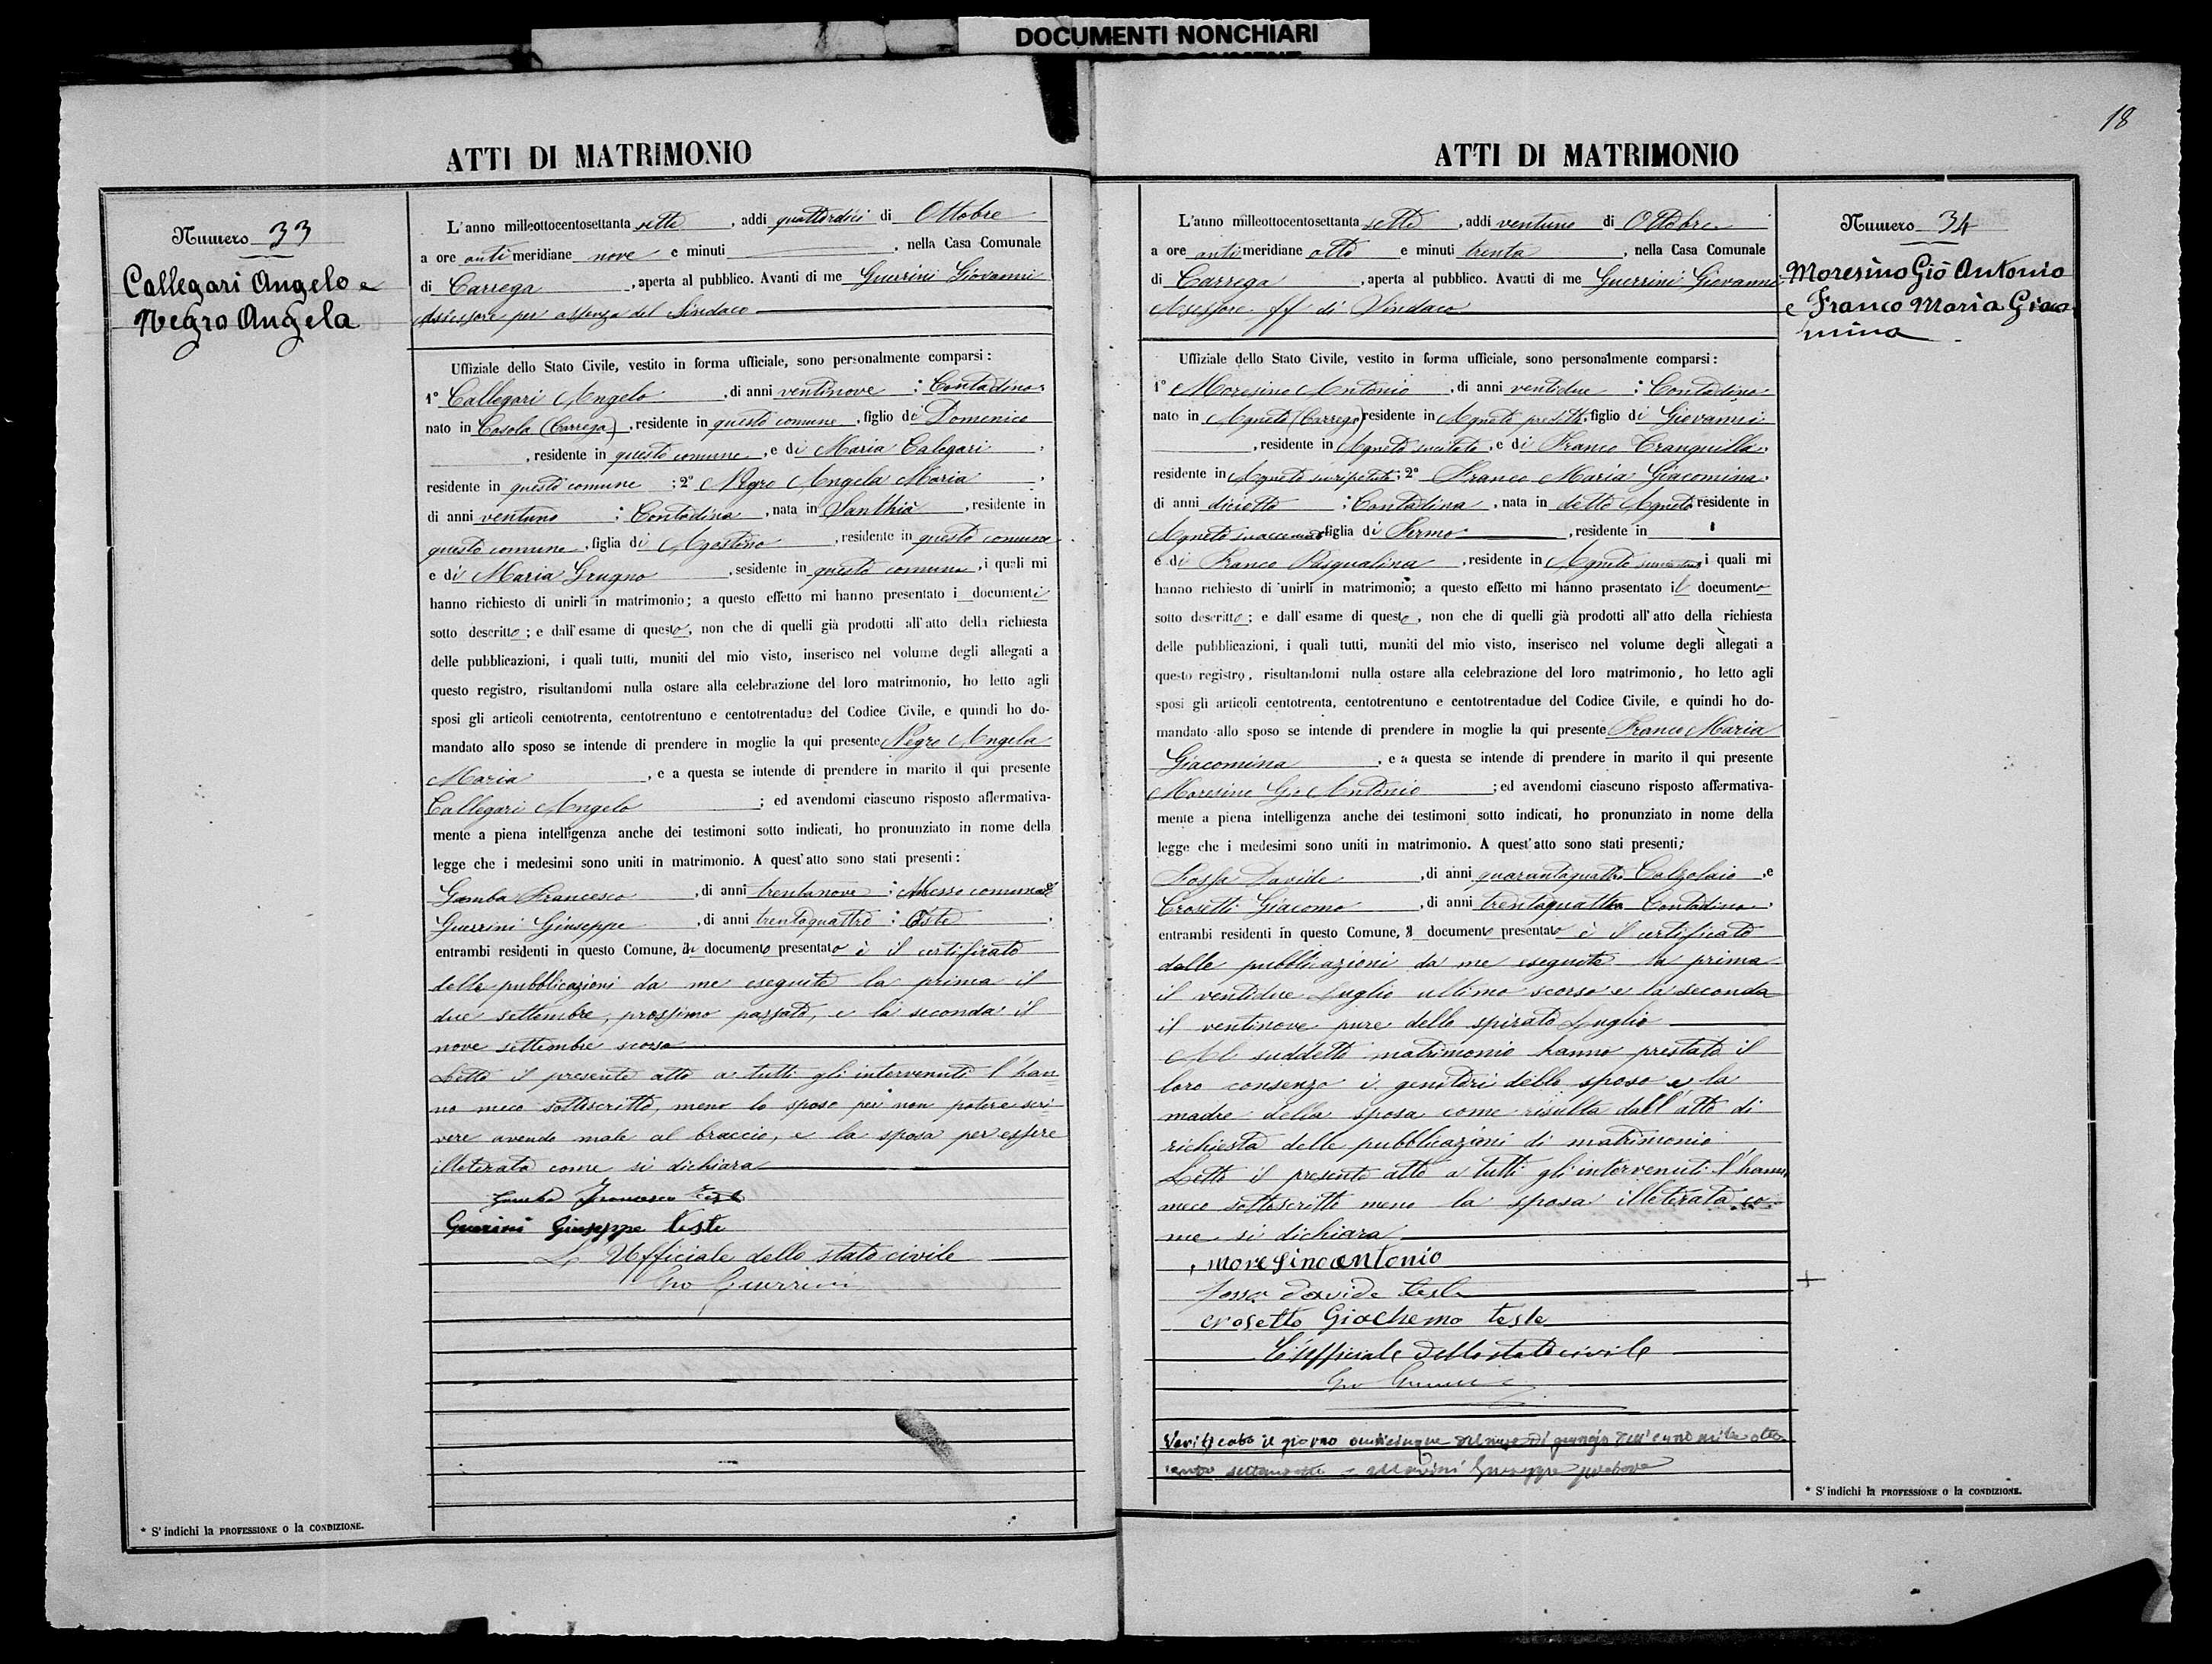 DOCUMENTI NONCHIARI
18
ATTI DI MATRIMONIO
Numero 33
Callegari Angelo e
Negro Angela
L'anno milleottocentosettanta sette, addi quattordici di Ottobre
a ore anti meridiane nove e minuti , nella Casa Comunale
di Carrega , aperta al pubblico. Avanti di me Guerrini Giovanni
Assessore per assenza del Sindaco
Uffiziale dello Stato Civile, vestito in forma ufficiale, sono personalmente comparsi:
1° Callegari Angelo , di anni ventinove ; Contadino
nato in Casola (Carrega) , residente in questo comune , figlio di Domenico
, residente in questo comune , e di Maria Calegari ,
residente in questo comune ; 2° Negro Angela Maria ,
di anni ventuno ; Contadina , nata in Santhià , residente in
questo comune , figlia di Agostino , residente in questo comune
e di Maria Grugno , sesidente in questo comune , i quali mi
hanno richiesto di unirli in matrimonio; a questo effetto mi hanno presentato i documenti
sotto descritto; e dall'esame di questo, non che di quelli già prodotti all'atto della richiesta
delle pubblicazioni, i quali tutti, muniti del mio visto, inserisco nel volume degli allegati a
questo registro, risultandomi nulla ostare alla celebrazione del loro matrimonio, ho letto agli
sposi gli articoli centotrenta, centotrentuno e centotrentadue del Codice Civile, e quindi ho do-
mandato allo sposo se intende di prendere in moglie la qui presente Negro Angela
Maria , e a questa se intende di prendere in marito il qui presente
Callegari Angelo ; ed avendomi ciascuno risposto affermativa-
mente a piena intelligenza anche dei testimoni sotto indicati, ho pronunziato in nome della
legge che i medesimi sono uniti in matrimonio. A quest'atto sono stati presenti:
Gamba Francesco , di anni trentanove ; Messo comunale
Guerrini Giuseppe , di anni trentaquattro ; Oste ,
entrambi residenti in questo Comune, documento presentato è il certificato
delle pubblicazioni da me eseguite la prima il
due settembre, prossimo passato, e la seconda il
nove settembre scorso
Letto il presente atto a tutti gli intervenuti l'han
no meco sottoscritto, meno lo sposo per non potere scri
vere avendo male al braccio, e la sposa per essere
illetterata come si dichiara
Gamba Francesco Teste
Guerini Giuseppe teste
L'Ufficiale dello stato civile
Gio Guerrini
* S'indichi la PROFESSIONE o la CONDIZIONE.
ATTI DI MATRIMONIO
Numero 34
Moresino Gio Antonio
e Franco Maria Giaco
mina
L'anno milleottocentosettanta sette , addi ventuno di Ottobre
a ore anti meridiane otto e minuti trenta , nella Casa Comunale
di Carrega , aperta al pubblico. Avanti di me Guerrini Giovanni
Assessore ff di Sindaco
Uffiziale dello Stato Civile, vestito in forma ufficiale, sono personalmente comparsi:
1° Moresino Antonio , di anni ventidue ; Contadino
nato in Agneto (Carrega) residente in Agneto predetto, figlio di Giovanni
, residente in Agneto sucitato , e di Franco Tranquilla ,
residente in Agneto ; 2° Franco Maria Giacomina ,
di anni diciotto ; Contadina , nata in detto Agneto residente in
Agneto figlia di Fermo , residente in
e di Franco Pasqualina , residente in Agneto i quali mi
hanno richiesto di unirli in matrimonio; a questo effetto mi hanno presentato il documento
sotto descritto; e dall'esame di questo, non che di quelli già prodotti all'atto della richiesta
delle pubblicazioni, i quali tutti, muniti del mio visto, inserisco nel volume degli allegati a
questo registro, risultandomi nulla ostare alla celebrazione del loro matrimonio, ho letto agli
sposi gli articoli centotrenta, centotrentuno e centotrentadue del Codice Civile, e quindi ho do-
mandato allo sposo se intende di prendere in moglie la qui presente Franco Maria
Giacomina , e a questa se intende di prendere in marito il qui presente
Moresino Gio Antonio ; ed avendomi ciascuno risposto affermativa-
mente a piena intelligenza anche dei testimoni sotto indicati, ho pronunziato in nome della
legge che i medesimi sono uniti in matrimonio. A quest'atto sono stati presenti;
Fossa Davide , di anni quarantaquattro Calzolaio , e
Crosetti Giacomo , di anni trentaquattro Contadino ,
entrambi residenti in questo Comune, il documento presentato è il certificato
delle pubblicazioni da me eseguite la prima
il ventidue Luglio ultimo scorso e la seconda
il ventinove pure dello spirato Luglio
Al suddetto matrimonio hanno prestato il
loro consenzo i genitori dello sposo e la
madre della sposa come risulta dall'atto di
richiesta delle pubblicazioni di matrimonio
Letto il presente atto a tutti gli intervenuti l'hanno
meco sottoscritto meno la sposa illetterata co
me si dichiara
moresino antonio
fossa davide teste
crosetto Giachemo teste
L'ufficiale dello stato civile
Gio Guerrini
Verificato il giorno del mese di dell'anno mille otto
cento Giuseppe pretore
* S'indichi la PROFESSIONE o la CONDIZIONE.